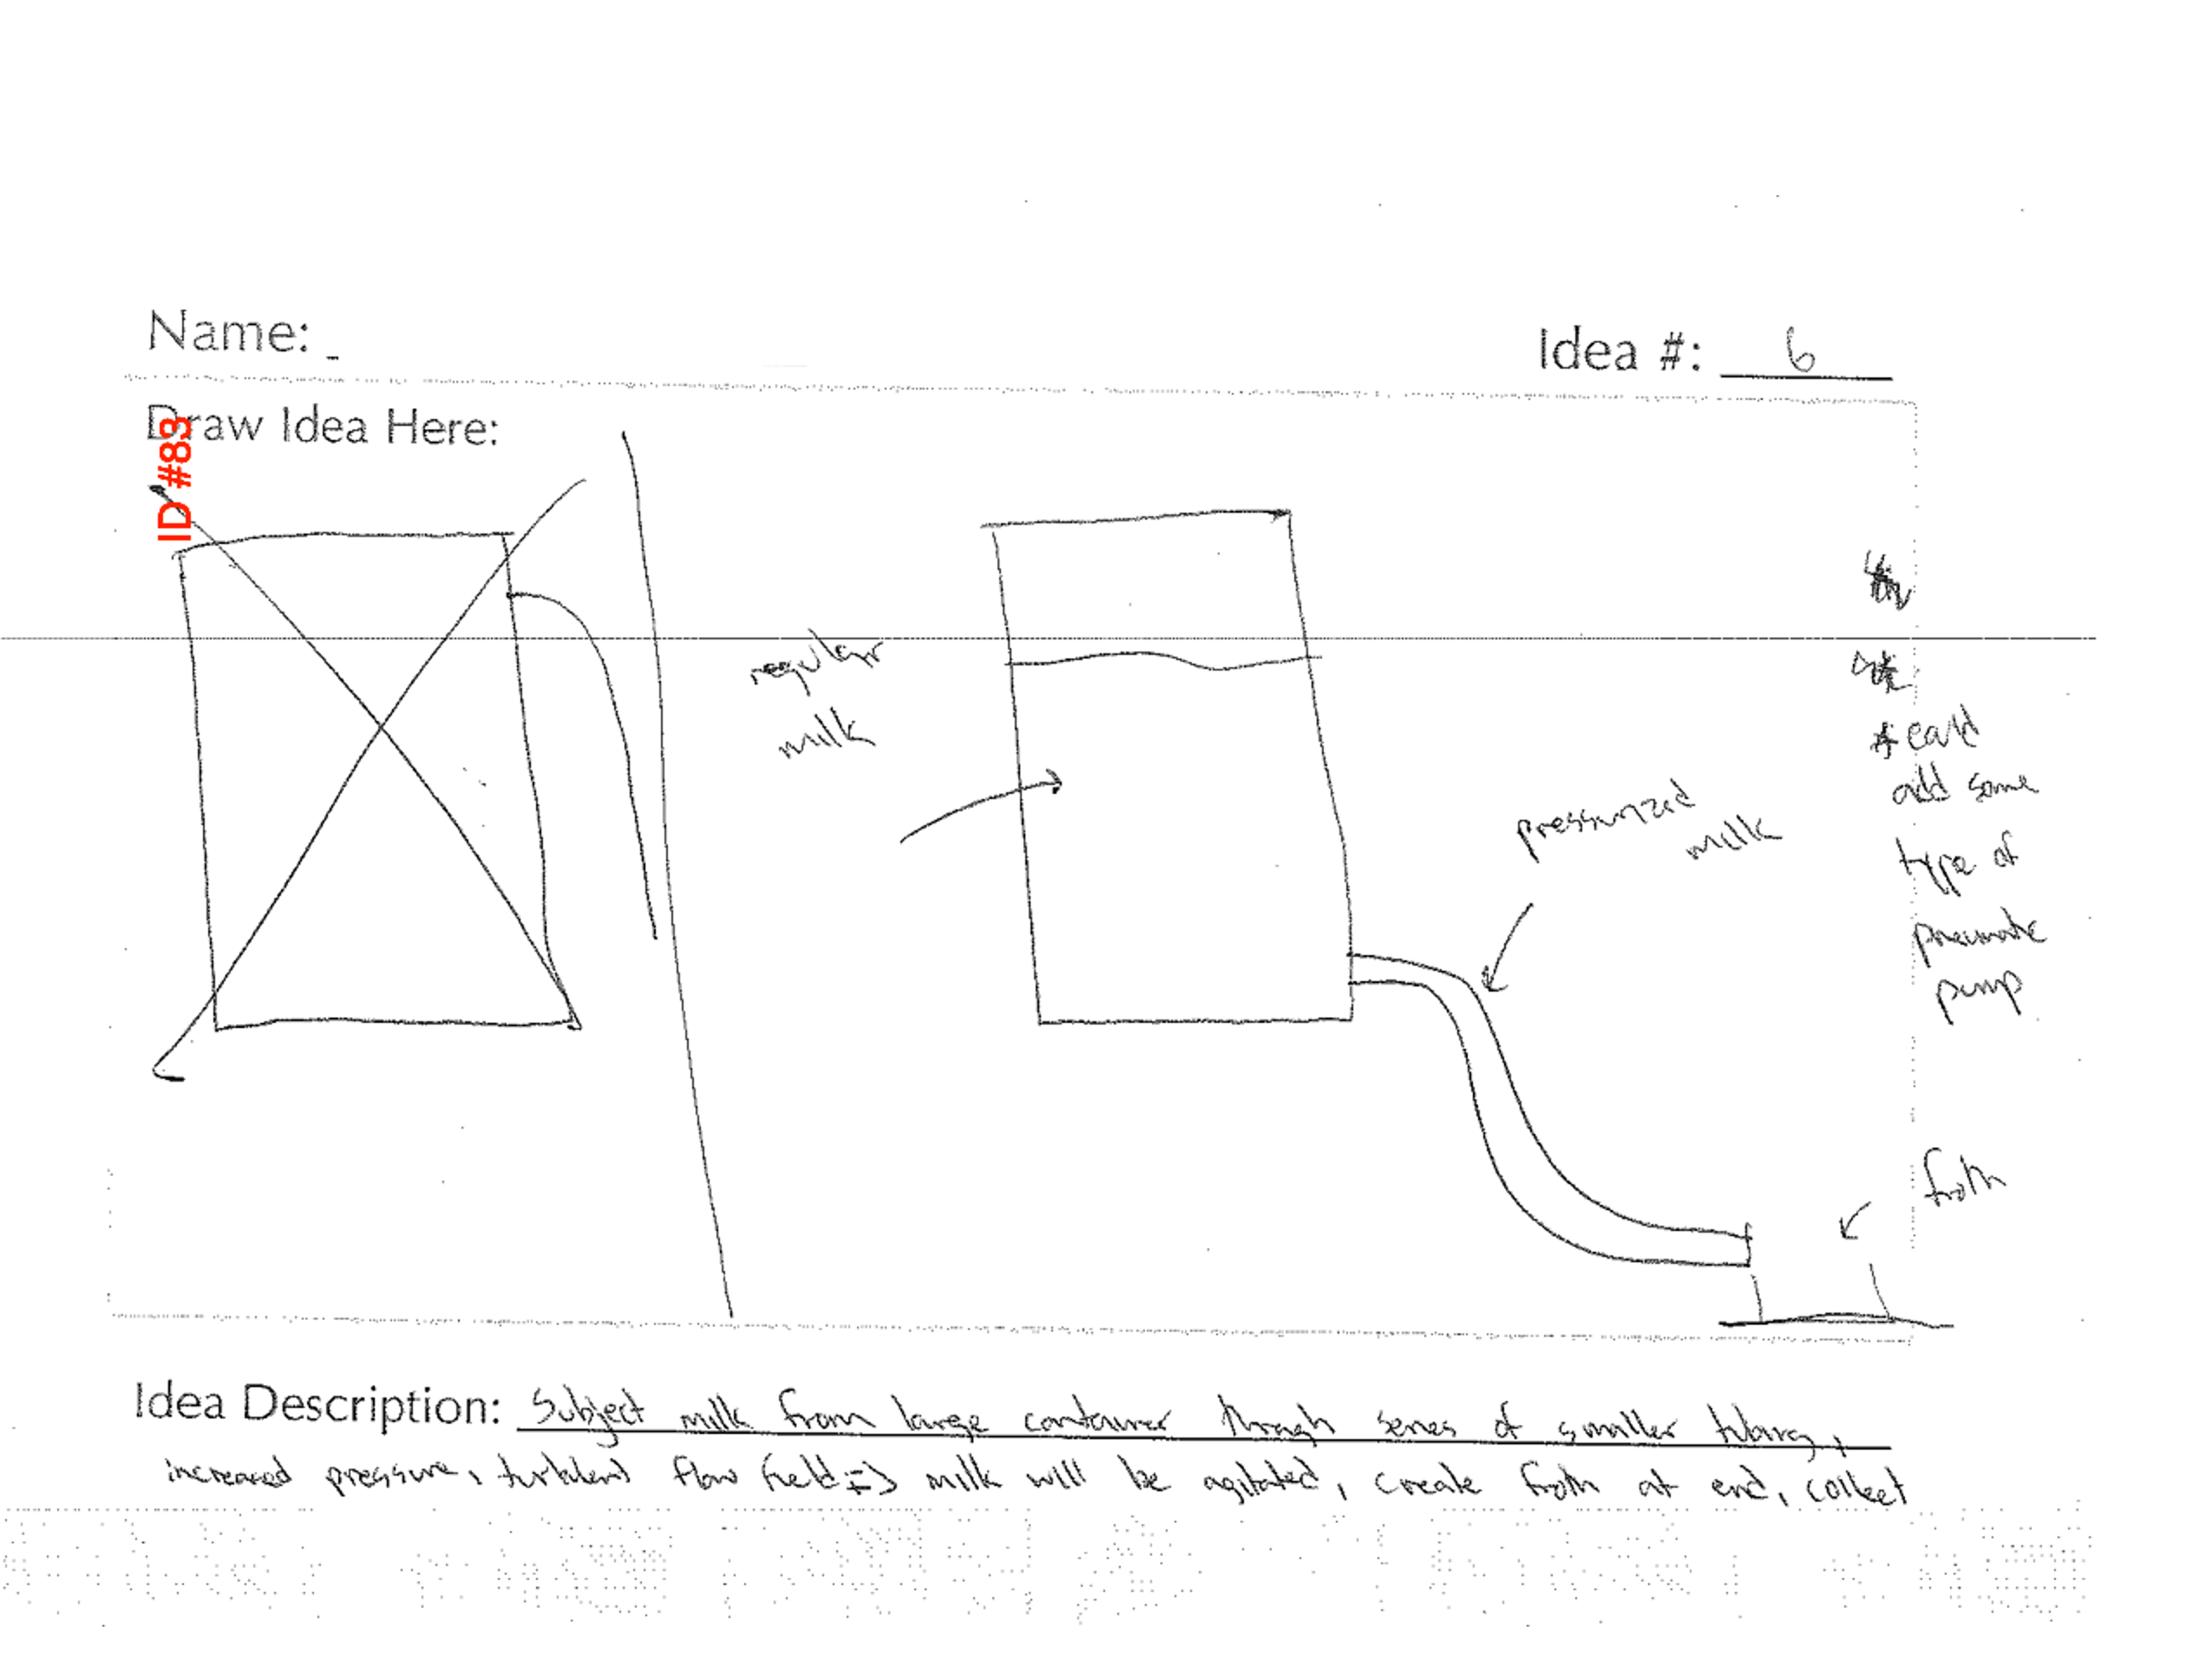 Name:
Idea #: 6
Draw Idea Here:
ID #83
regular
milk
pressurized
milk
* could
add some
type of
pneumatic
pump
froth
Idea Description: Subject milk from large container through series of smaller tubing,
increased pressure, turbulent flow field => milk will be agitated, create froth at end, collect